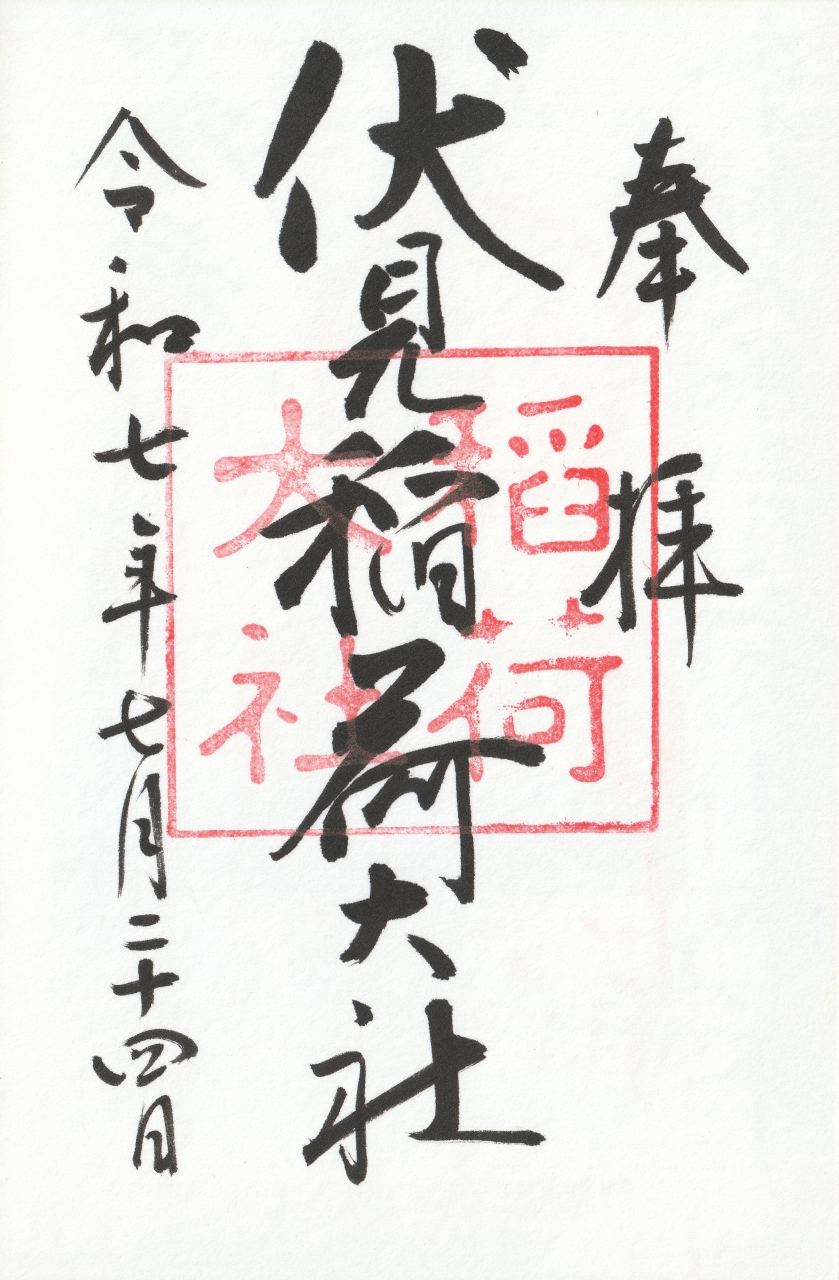 奉拝
伏見稲荷大社
令和七年七月二十四日
稲荷
大社